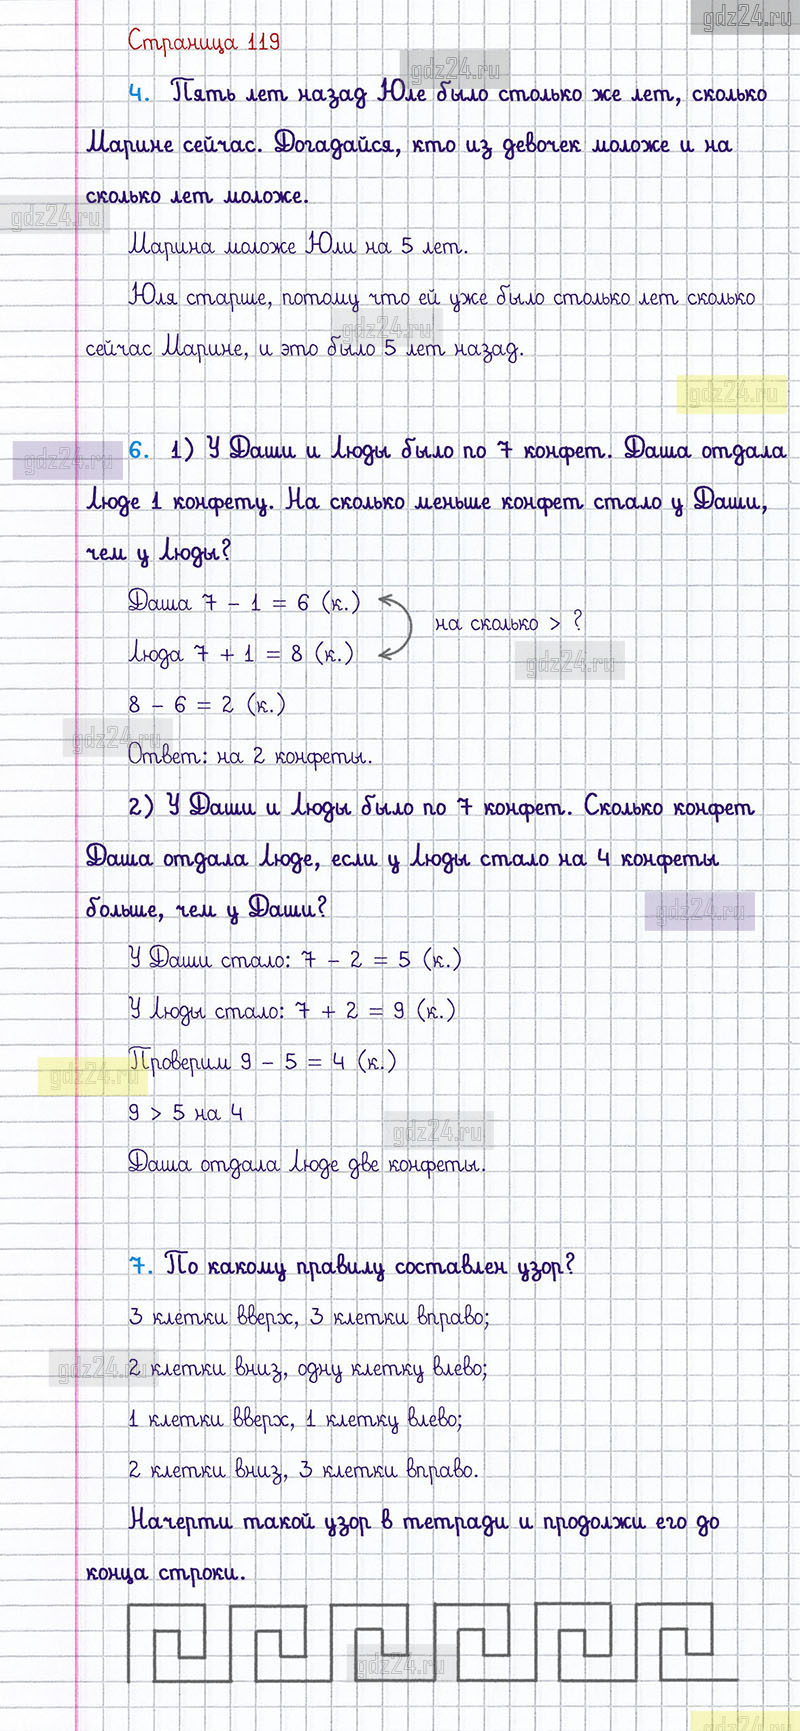 gdz24.ru
Страница 119
gdz24.ru
4. Пять лет назад Юле было столько же лет, сколько
Марине сейчас. Догадайся, кто из девочек моложе и на
сколько лет моложе.
gdz24.ru
Марина моложе Юли на 5 лет.
Юля старше, потому что ей уже было столько лет сколько
gdz24.ru
сейчас Марине, и это было 5 лет назад.
gdz24.ru
gdz24.ru
6. 1) У Даши и Люды было по 7 конфет. Даша отдала
Люде 1 конфету. На сколько меньше конфет стало у Даши,
чем у Люды?
Даша 7 - 1 = 6 (к.)
на сколько > ?
Люда 7 + 1 = 8 (к.)
gdz24.ru
8 - 6 = 2 (к.)
gdz24.ru
Ответ: на 2 конфеты.
2) У Даши и Люды было по 7 конфет. Сколько конфет
Даша отдала Люде, если у Люды стало на 4 конфеты
больше, чем у Даши?
gdz24.ru
У Даши стало: 7 - 2 = 5 (к.)
У Люды стало: 7 + 2 = 9 (к.)
Проверим 9 - 5 = 4 (к.)
gdz24.ru
9 > 5 на 4
gdz24.ru
Даша отдала Люде две конфеты.
7. По какому правилу составлен узор?
3 клетки вверх, 3 клетки вправо;
gdz24.ru
2 клетки вниз, одну клетку влево;
1 клетки вверх, 1 клетку влево;
2 клетки вниз, 3 клетки вправо.
Начерти такой узор в тетради и продолжи его до
конца строки.
gdz24.ru
gdz24.ru